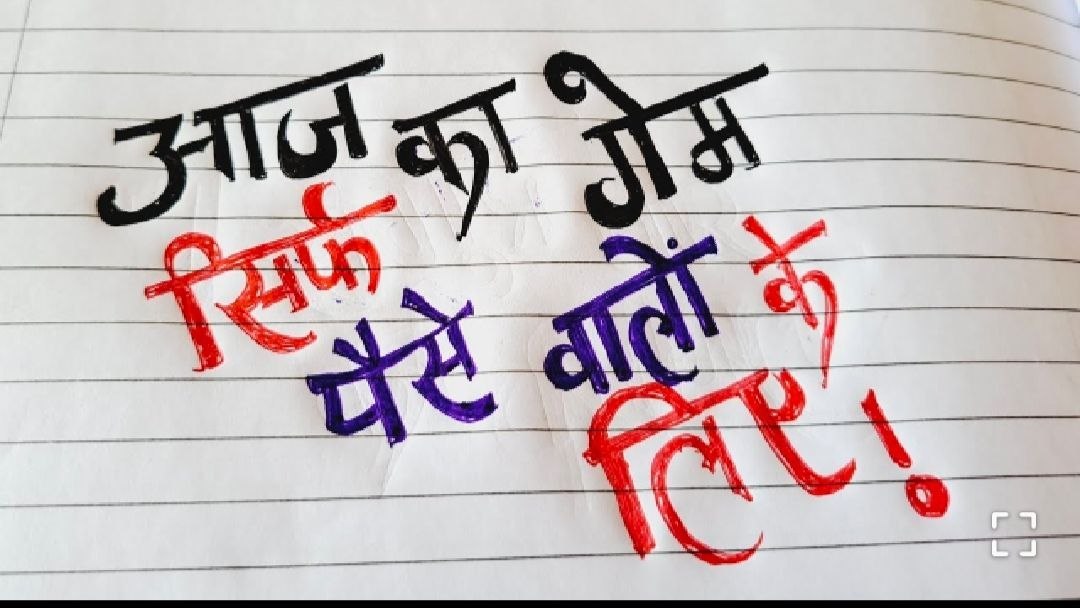 आज का गेम
सिर्फ
पैसे वालों के
लिए!